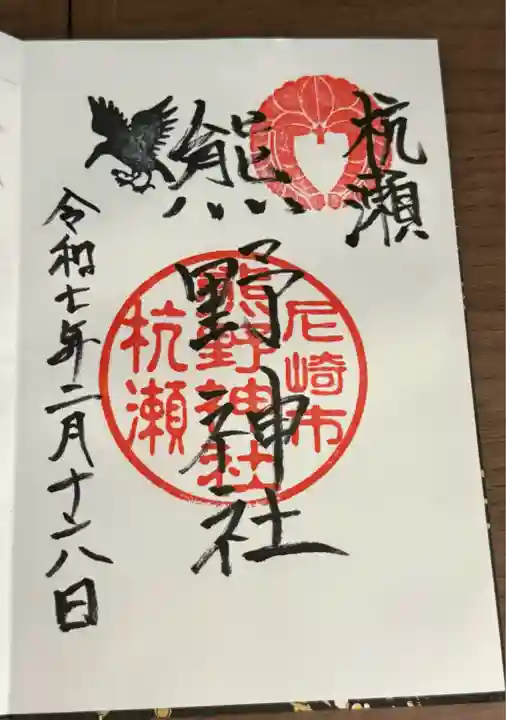 杭瀬
熊野神社
尼崎市
熊野神社
杭瀬
令和七年二月十八日